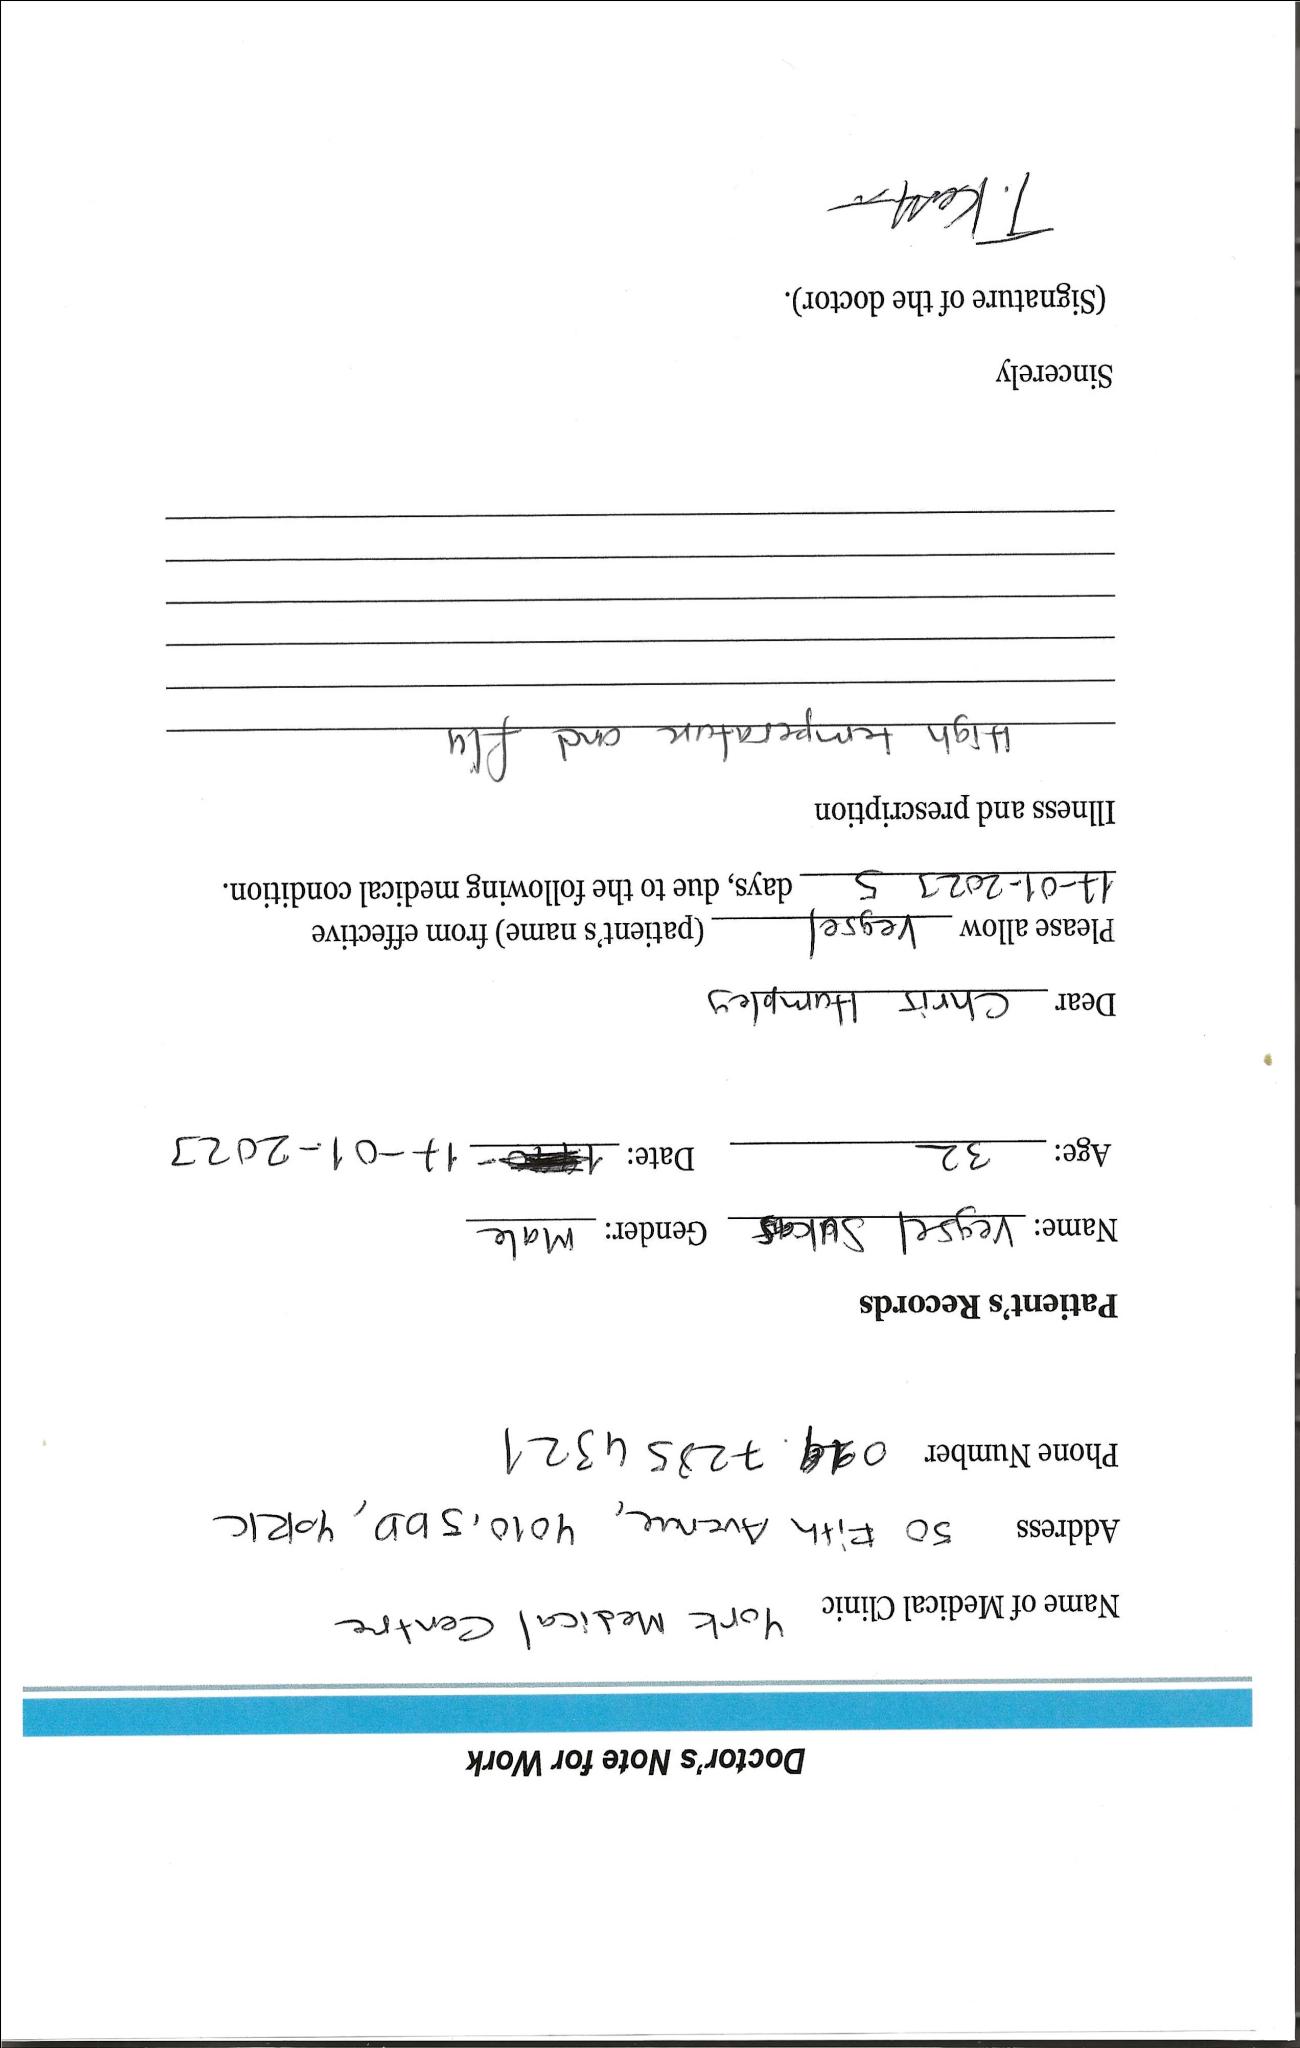 Doctor's Note for Work
Name of Medical Clinic York Medical Centre
Address 50 Fith Avenue, 4010, 5DD, YORK
Phone Number 7285 4321
Patient's Records
Name: Veysel Gender: Male
Age: 32 Date: 17-01-2023
Dear Chris Humpley
Please allow Veysel (patient's name) from effective
17-01-2023 5 days, due to the following medical condition.
Illness and prescription
High temperature and flu
Sincerely
(Signature of the doctor).